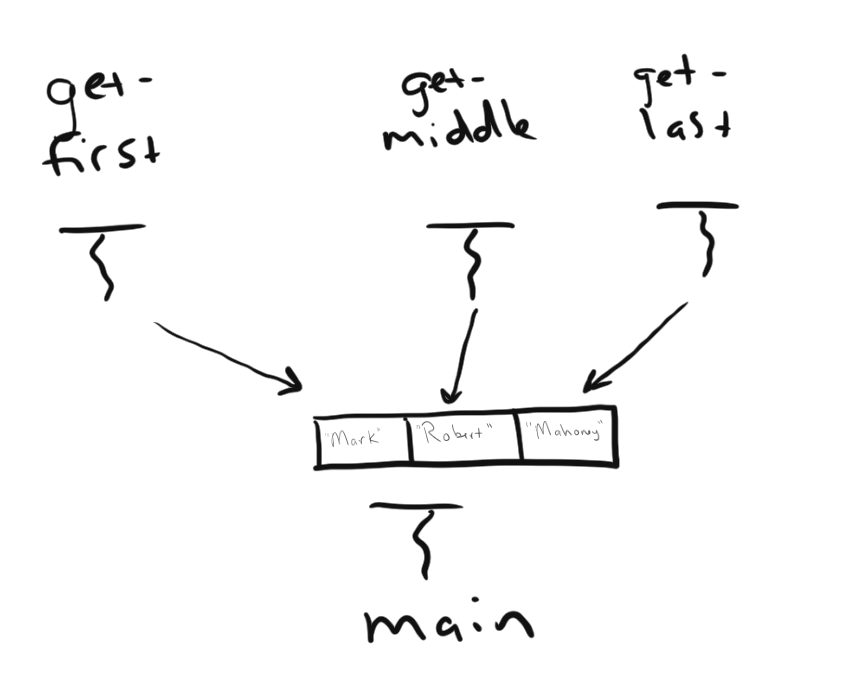 get-
first
get-
middle
get-
last
"Mark"
"Robert"
"Mahoney"
main